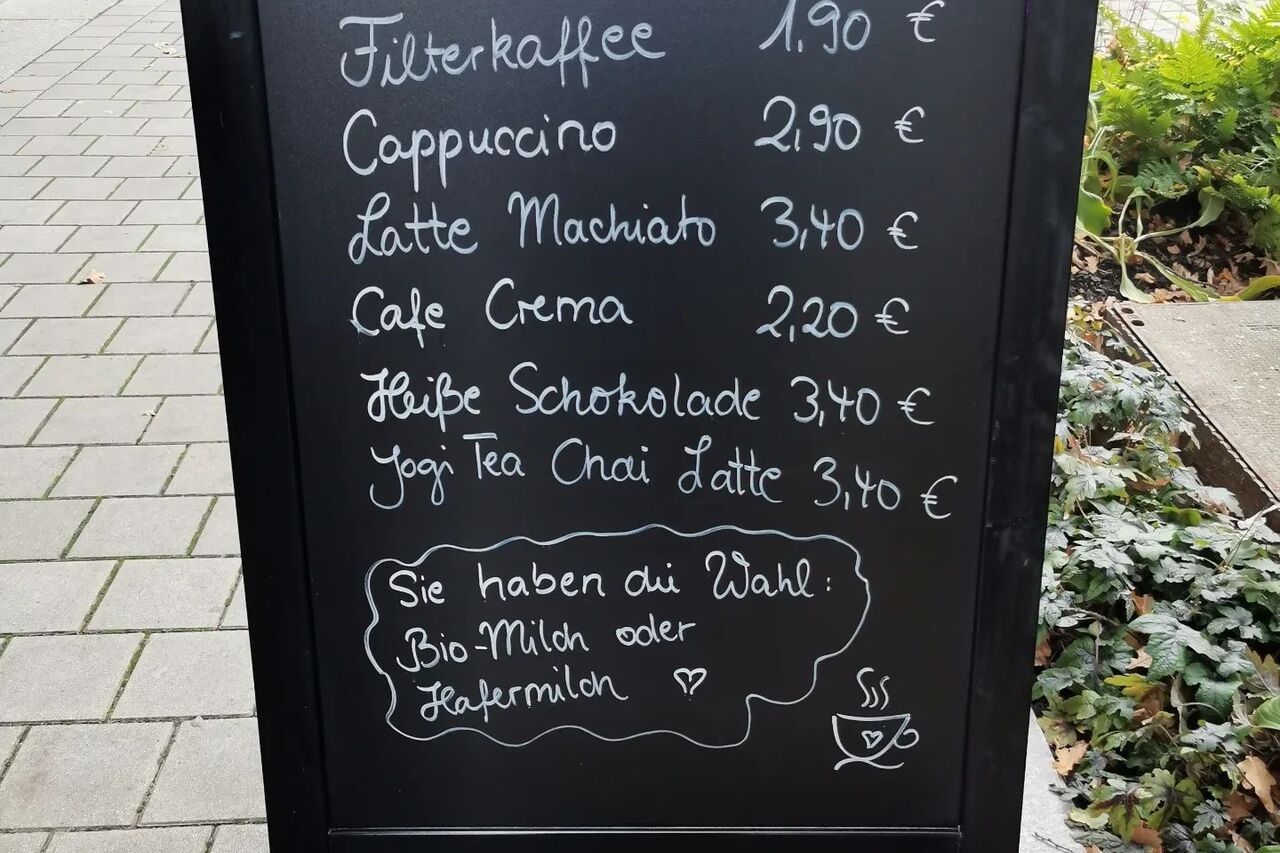 Filterkaffee 1,90 €
Cappuccino 2,90 €
Latte Machiato 3,40 €
Cafe Crema 2,20 €
Heiße Schokolade 3,40 €
Yogi Tea Chai Latte 3,40 €
Sie haben die Wahl:
Bio-Milch oder
Hafermilch